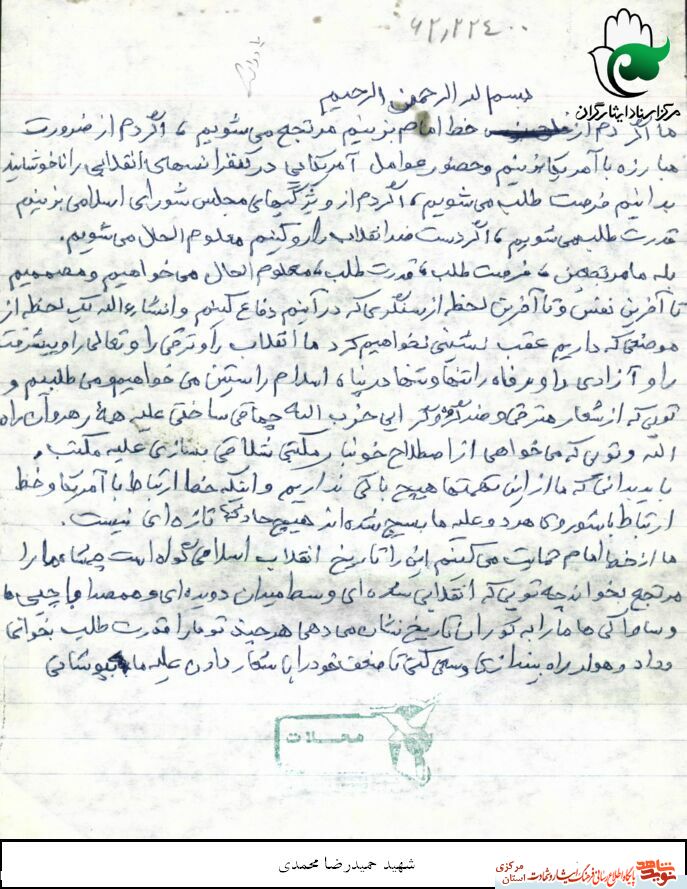 ۶۲٫۲۲۴۰۰
مرکز اسناد ایثارگران
بسم الله الرحمن الرحیم
ما اگر دم از خط امام بزنیم مرتجع می‌شویم، اگر دم از ضرورت
مبارزه با آمریکا بزنیم وحضور عوامل آمریکایی در کنفرانسهای انقلابی را ناخوشایند
بدانیم فرصت طلب می‌شویم، اگر دم از ویژگیهای مجلس شورای اسلامی بزنیم
قدرت طلب می‌شویم، اگر دست ضد انقلاب را رو کنیم معلوم الحال می‌شویم.
بله ما مرتجعین، فرصت طلب، قدرت طلب، معلوم الحال می‌خواهیم و مصممیم
تا آخرین نفس و تا آخرین لحظه از سنگری که در آنیم دفاع کنیم و انشاءالله یک لحظه از
موضعی که داریم عقب نشینی نخواهیم کرد ما انقلاب را و ترقی را و تعالی را و پیشرفت
را و آزادی را و رفاه را تنها و تنها در پناه اسلام راستین می خواهیم و می طلبیم و
تویی که از شعار مترقی و ضد حزب الله چماقی ساختی علیه همهٔ رهروان راه
الله و تویی که می‌خواهی از اصطلاح خونبار مکتبی شلاقی بسازی علیه مکتب.
باید بدانی که ما از این تهمتها هیچ باکی نداریم و اینکه خط ارتباط با آمریکا و خط
ارتباط با شوروی هر دو علیه ما بسیج شده اند هیچ حادثهٔ تازه ای نیست.
ما از خط امام حمایت می‌کنیم این را تاریخ انقلاب اسلامی گواه است چه شاه ما را
مرتجع بخواند چه تویی که انقلابی شده ای و وسط میدان دویده‌ای و همصدا با چپی ها
و ساواکی ها ما را به کوران تاریخ نشان می دهی هر چند تو ما را قدرت طلب بخوانی
و داد و هوار راه بیندازی و سعی کنی تا ضعف خود را با شعار دادن علیه ما بپوشانی
محلات
شهید حمیدرضا محمدی
نوید شاهد
پایگاه اطلاع رسانی فرهنگ ایثار و شهادت استان مرکزی